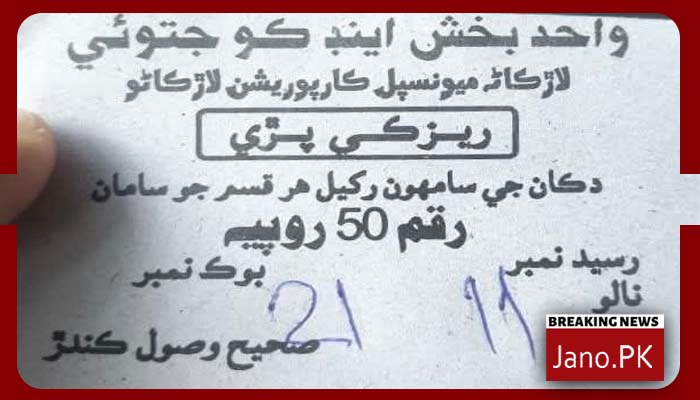 واحد بخش اينڊ ڪو جتوئي
لاڙڪاڻه ميونسپل ڪارپوريشن لاڙڪاڻو
ريزڪي پڙي
دڪان جي سامهون رکيل هر قسم جو سامان
رقم 50 روپيه
رسيد نمبر 11 بوڪ نمبر 21
نالو
صحيح وصول ڪندڙ
BREAKING NEWS
Jano.PK